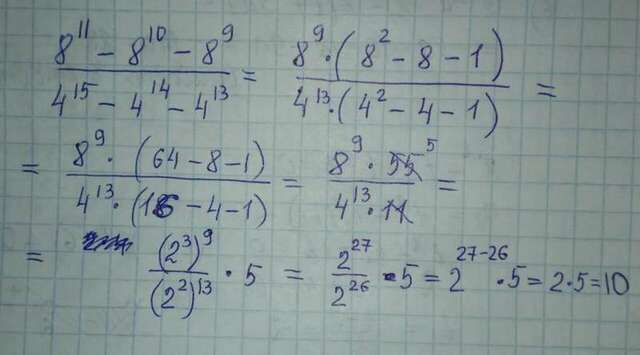 (8^11 − 8^10 − 8^9)/(4^15 − 4^14 − 4^13) = (8^9 · (8^2 − 8 − 1))/(4^13 · (4^2 − 4 − 1)) =
= (8^9 · (64 − 8 − 1))/(4^13 · (16 − 4 − 1)) = (8^9 · 55 5)/(4^13 · 11) =
= (2^3)^9/(2^2)^13 · 5 = 2^27/2^26 · 5 = 2^(27−26) · 5 = 2 · 5 = 10